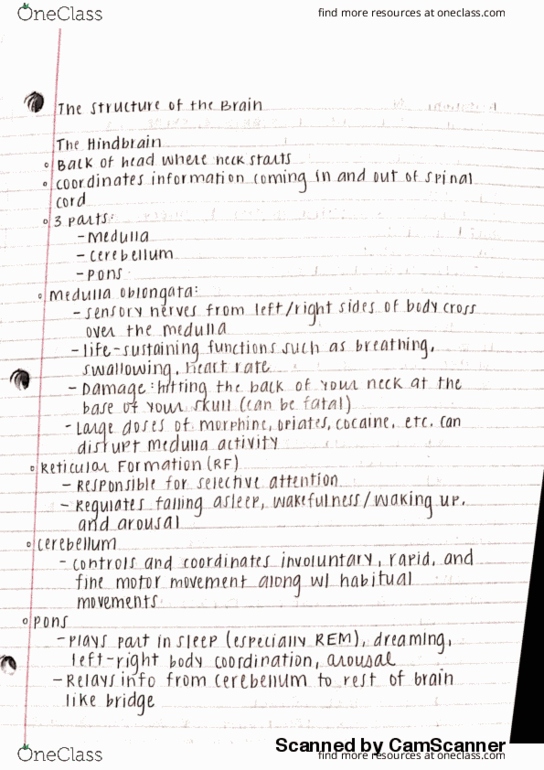 OneClass
find more resources at oneclass.com
The Structure of the Brain
The Hindbrain
Back of head where neck starts
coordinates information coming in and out of spinal
cord
3 parts:
- Medulla
- Cerebellum
- Pons
Medulla oblongata:
- sensory nerves from left/right sides of body cross
over the medulla
- life-sustaining functions such as breathing,
swallowing, heart rate
- Damage: hitting the back of your neck at the
base of your skull (can be fatal)
- Large doses of morphine, opiates, cocaine, etc. can
disrupt medulla activity
Reticular Formation (RF)
- Responsible for selective attention
- Regulates falling asleep, wakefulness/waking up,
and arousal
Cerebellum
- controls and coordinates involuntary, rapid, and
fine motor movement along w/ habitual
movements.
Pons
- Plays part in sleep (especially REM), dreaming,
left-right body coordination, arousal
- Relays info from cerebellum to rest of brain
like bridge
Scanned by CamScanner
OneClass
find more resources at oneclass.com